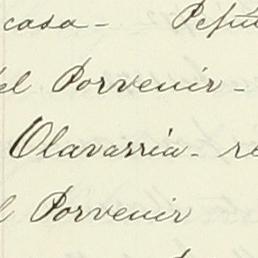 casa - Peñu
el Porvenir -
Olavarria - re
l Porvenir